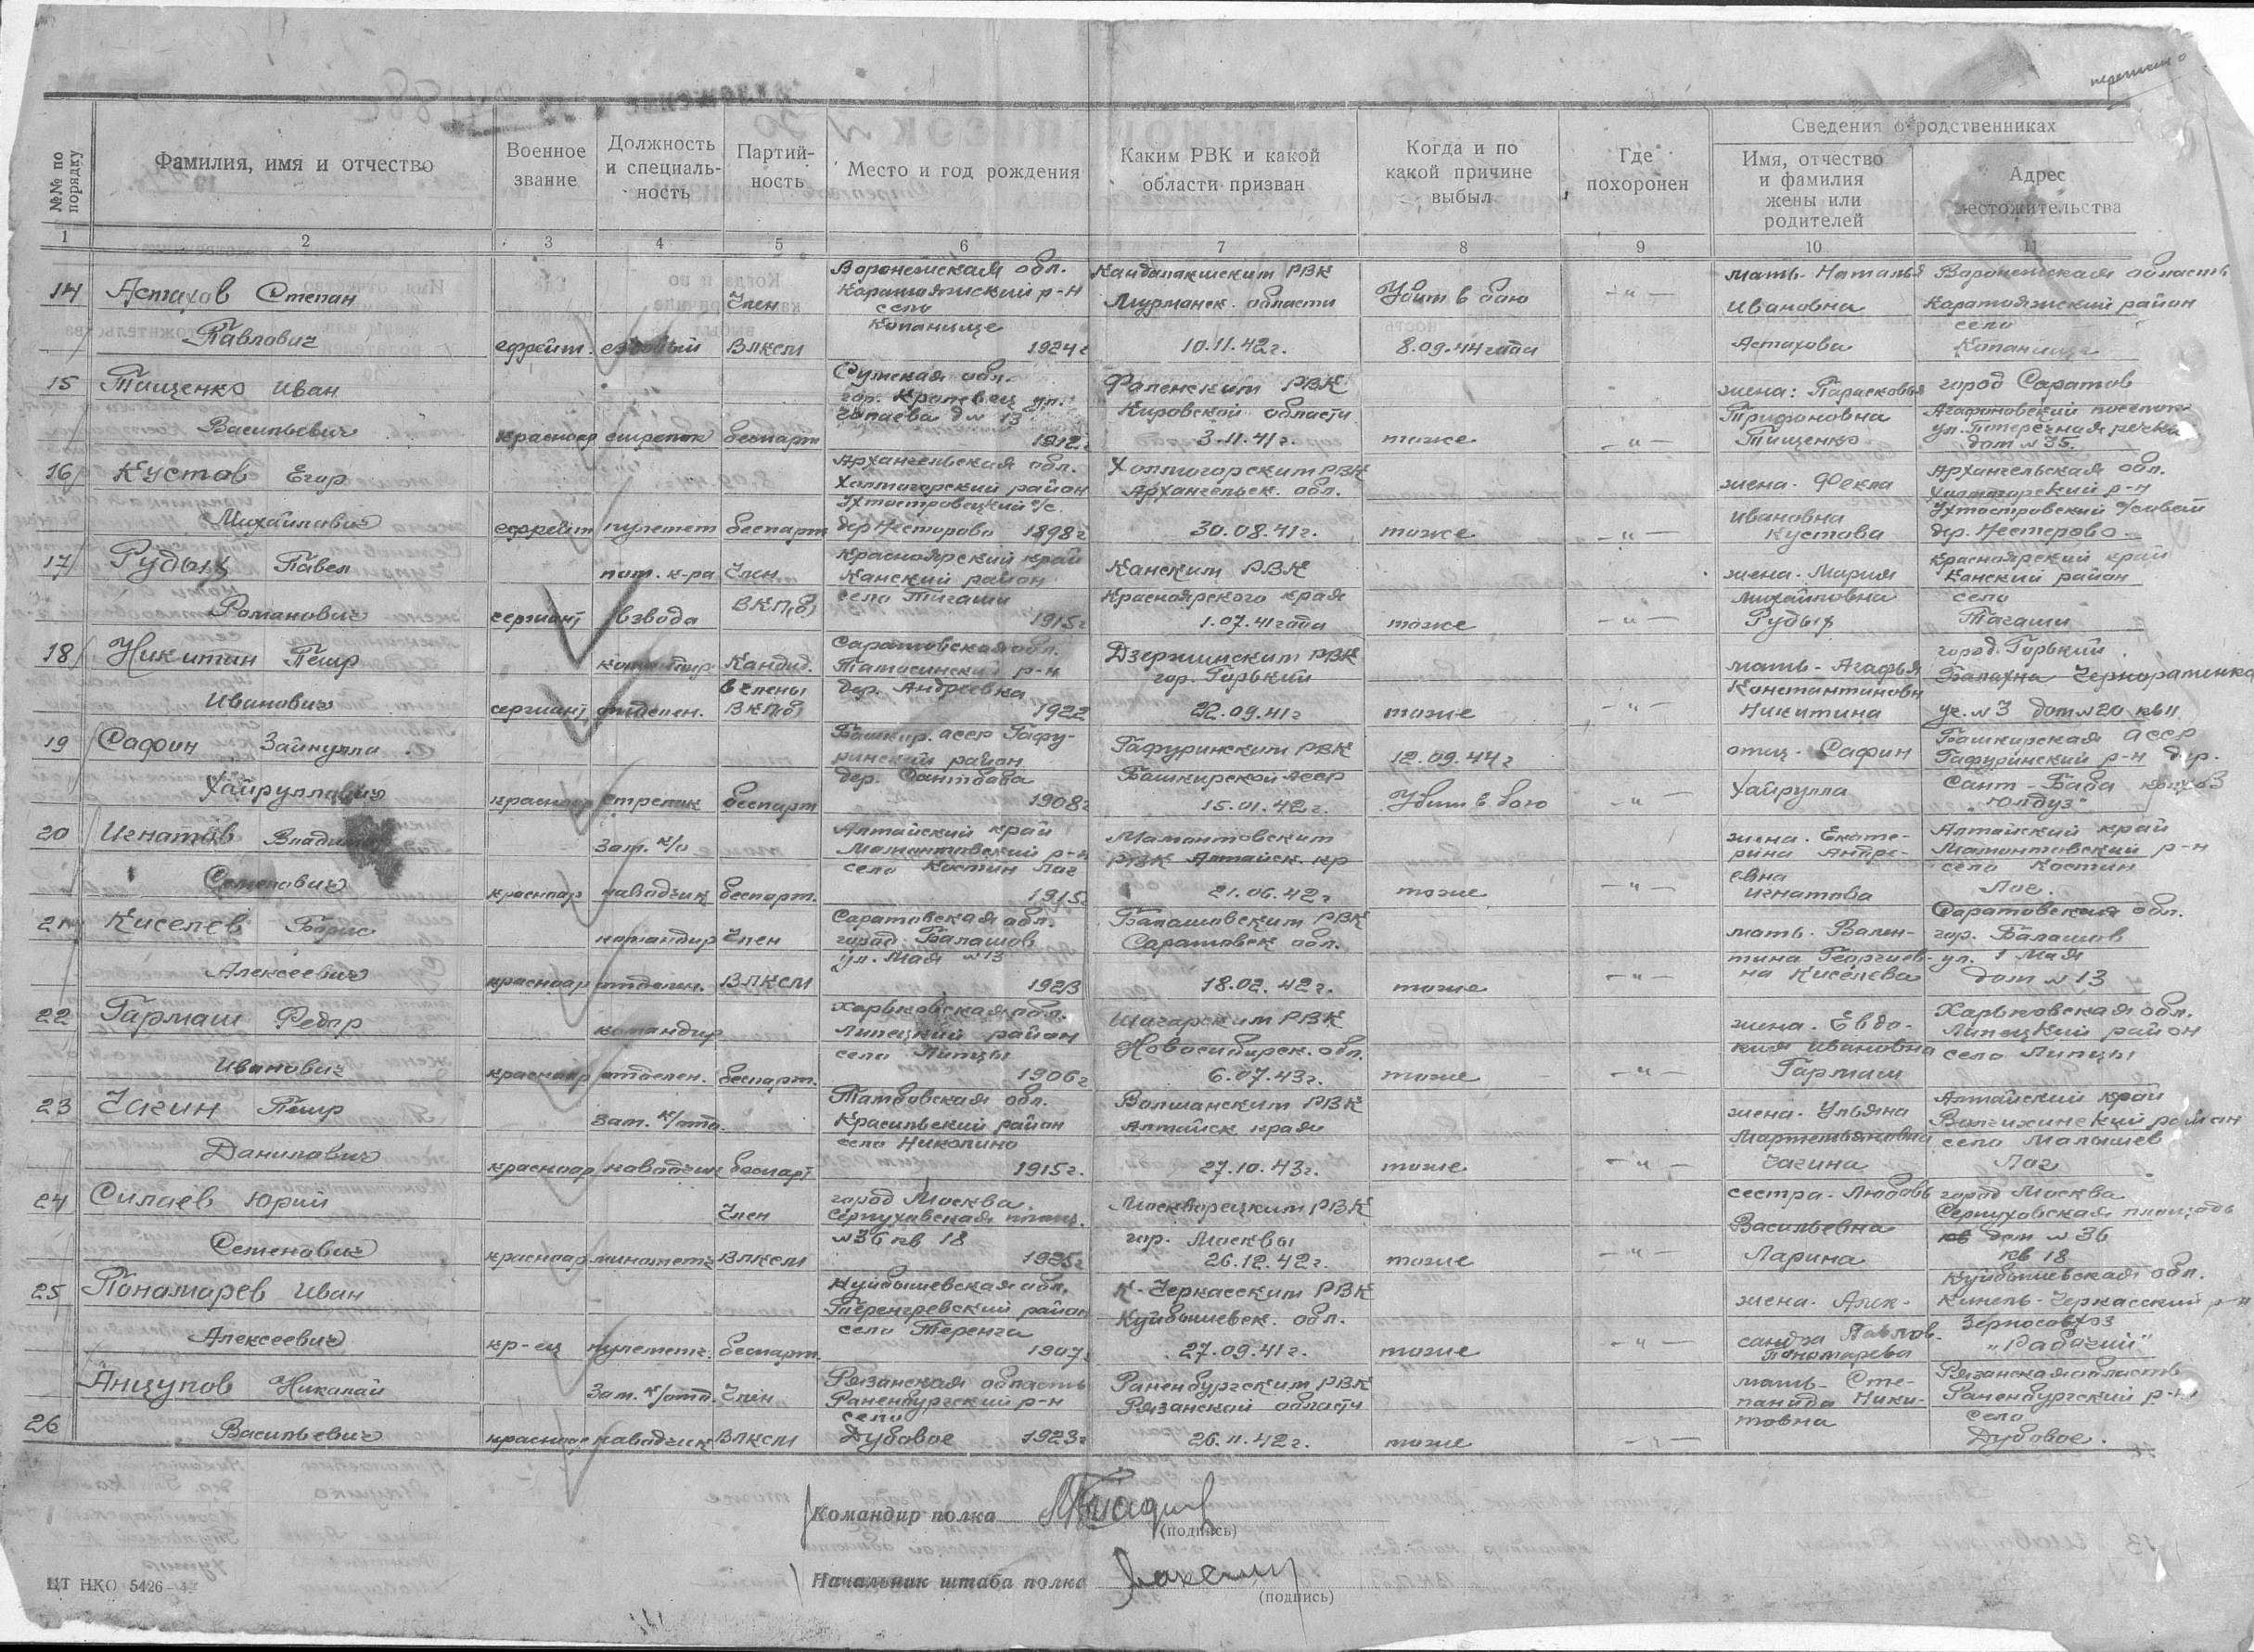 №№ по порядку
Фамилия, имя и отчество
Военное звание
Должность и специальность
Партийность
Место и год рождения
Каким РВК и какой области призван
Когда и по какой причине выбыл
Где похоронен
Сведения о родственниках
Имя, отчество и фамилия жены или родителей
Адрес местожительства
1 2 3 4 5 6 7 8 9 10 11
14 Астахов Степан Павлович ефрейт. Член ВЛКСМ Воронежская обл. Каратоякский р-н село Копанище 1924г Кандалакшским РВК Мурманск. области 10.11.42г. Убит в бою 8.09.44 года -"- мать-Наталья Ивановна Астахова Воронежская область Каратоякский район село Копанище
15 Тищенко Иван Васильевич красноар стрелок беспарт Сумская обл. гор. Кролевец ул. Чапаева д № 13 1912г Фаленским РВК Кировской области 3.11.41г. тоже -"- жена: Парасковья Трифоновна Тищенко город Саратов Агафоновский поселок ул. Поперечная речка дом № 35.
16 Кустов Егор Михайлович ефрейт пулемет беспарт Архангельская обл. Холмогорский район Ухтостровецкий с/с. дер Нестерово 1898г Холмогорским РВК Архангельск. обл. 30.08.41г. тоже -"- жена. Фекла Ивановна Кустова Архангельская обл. Холмогорский р-н Ухтостровский с/совет дер. Нестерово
17 Рудых Павел Романович сержант пом. к-ра взвода Член ВКП(б) Красноярский край Канский район село Тигаши 1915г Канским РВК Красноярского края 1.07.41 года тоже -"- жена. Мария Михайловна Рудых Красноярский край Канский район село Тагаши
18 Никитин Петр Иванович сержант командир отделен. Кандид. в члены ВКП(б) Саратовская обл. р-н дер. Андреевка 1922 Дзержинским РВК гор. Горький 22.09.41г тоже -"- мать-Агафья Константиновн Никитина город. Горький уч. № 3 дом № 20 кв 11
19 Сафин Зайнулла Хайруллович красноар стрелок беспарт Башкир. АССР Гафуринский район дер. Сантбаба 1908г Гафуринским РВК Башкирской АССР 15.01.42г. 12.09.44г Убит в бою -"- отец-Сафин Хайрулла Башкирская АССР Гафуринский р-н дер. Сант-Баба колхоз "Юлдуз"
20 Игнатов Владимир Семенович красноар Зам. к/о наводчик беспарт. Алтайский край Мамонтовский р-н село Костин Лог 1915г Мамонтовским РВК Алтайск. кр 21.06.42г тоже -"- жена. Екатерина Андреевна Игнатова Алтайский край Мамонтовский р-н село Костин Лог.
21 Киселев Борис Алексеевич красноар командир отделен. Член ВЛКСМ Саратовская обл. город Балашов ул. Мая № 13 1923 Балашовским РВК Саратовск обл. 18.02.42г. тоже -"- мать. Валентина Георгиевна Киселева Саратовская обл. гор. Балашов ул. 1 Мая дом № 13
22 Гармаш Федор Иванович красноар командир отделен. беспарт. Харьковская обл. Липецкий район село Липцы 1906г РВК Новосибирск. обл. 6.07.43г. тоже -"- жена. Евдокия Ивановна Гармаш Харьковская обл. Липецкий район село Липцы
23 Чагин Петр Данилович красноар Зам. к/отд. наводчик беспарт Тамбовская обл. район село Николино 1915г. РВК Алтайск края 27.10.43г. тоже -"- жена. Ульяна Чагина Алтайский край Волчихинский район село Малышев Лог
24 Силаев Юрий Семенович красноар минометч Член ВЛКСМ город Москва. Серпуховская площ. № 36 кв 18 1925г Москворецким РВК гор. Москвы 26.12.42г. тоже -"- сестра-Любовь Васильевна Ларина город Москва Серпуховская площадь дом № 36 кв 18
25 Пономарев Иван Алексеевич кр-ец пулеметч. беспарт. Куйбышевская обл. Теренгревский район село Теренга 1907г К-Черкасским РВК Куйбышевск. обл. 27.09.41г. тоже -"- жена. Александра Павлов. Пономарева Куйбышевская обл. Кинель-Черкасский р-н Зерносовхоз "Рабочий"
26 Анцупов Николай Васильевич красноар Зам. к/отд. наводчик Член ВЛКСМ Рязанская область Раненбургский р-н село Дубовое 1923г Раненбургским РВК Рязанской области 26.11.42г. тоже -"- мать-Степанида Никитовна Рязанская область Раненбургский р-н село Дубовое.
Командир полка
(подпись)
Начальник штаба полка
(подпись)
ЦТ НКО 5426